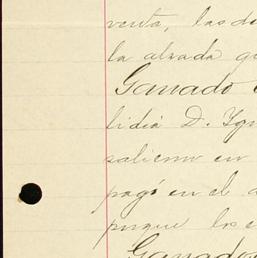 venta, las de
la alzada qu
Ganado
lidió D. Ygn
salieron en
pagó en el a
porque los
Ganado